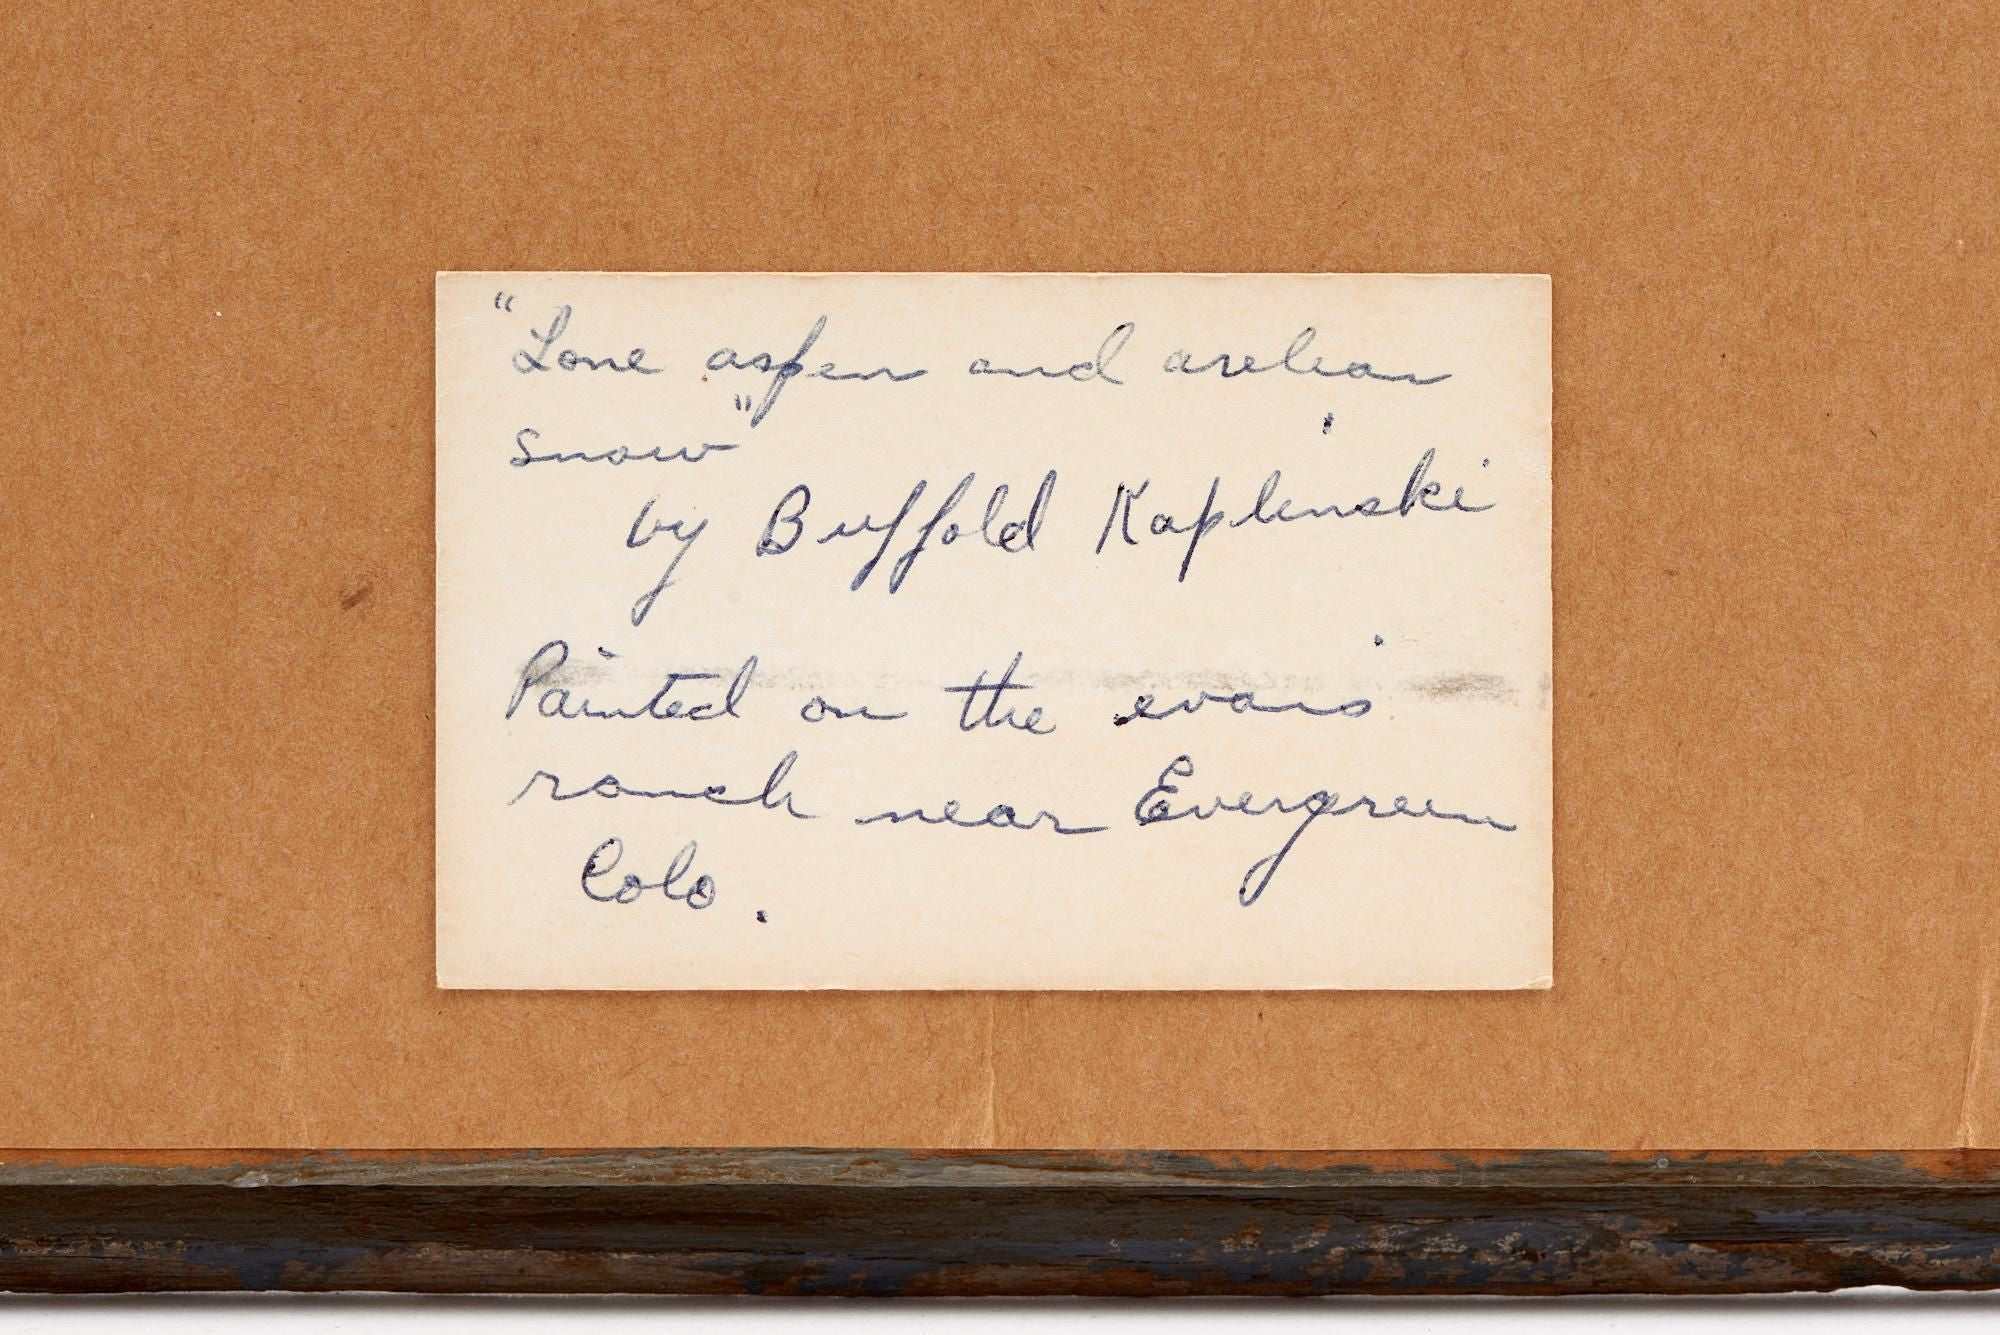 "Lone aspen and
snow"
by Buffold Kaplinski
Painted on the evans
ranch near Evergreen
Colo.